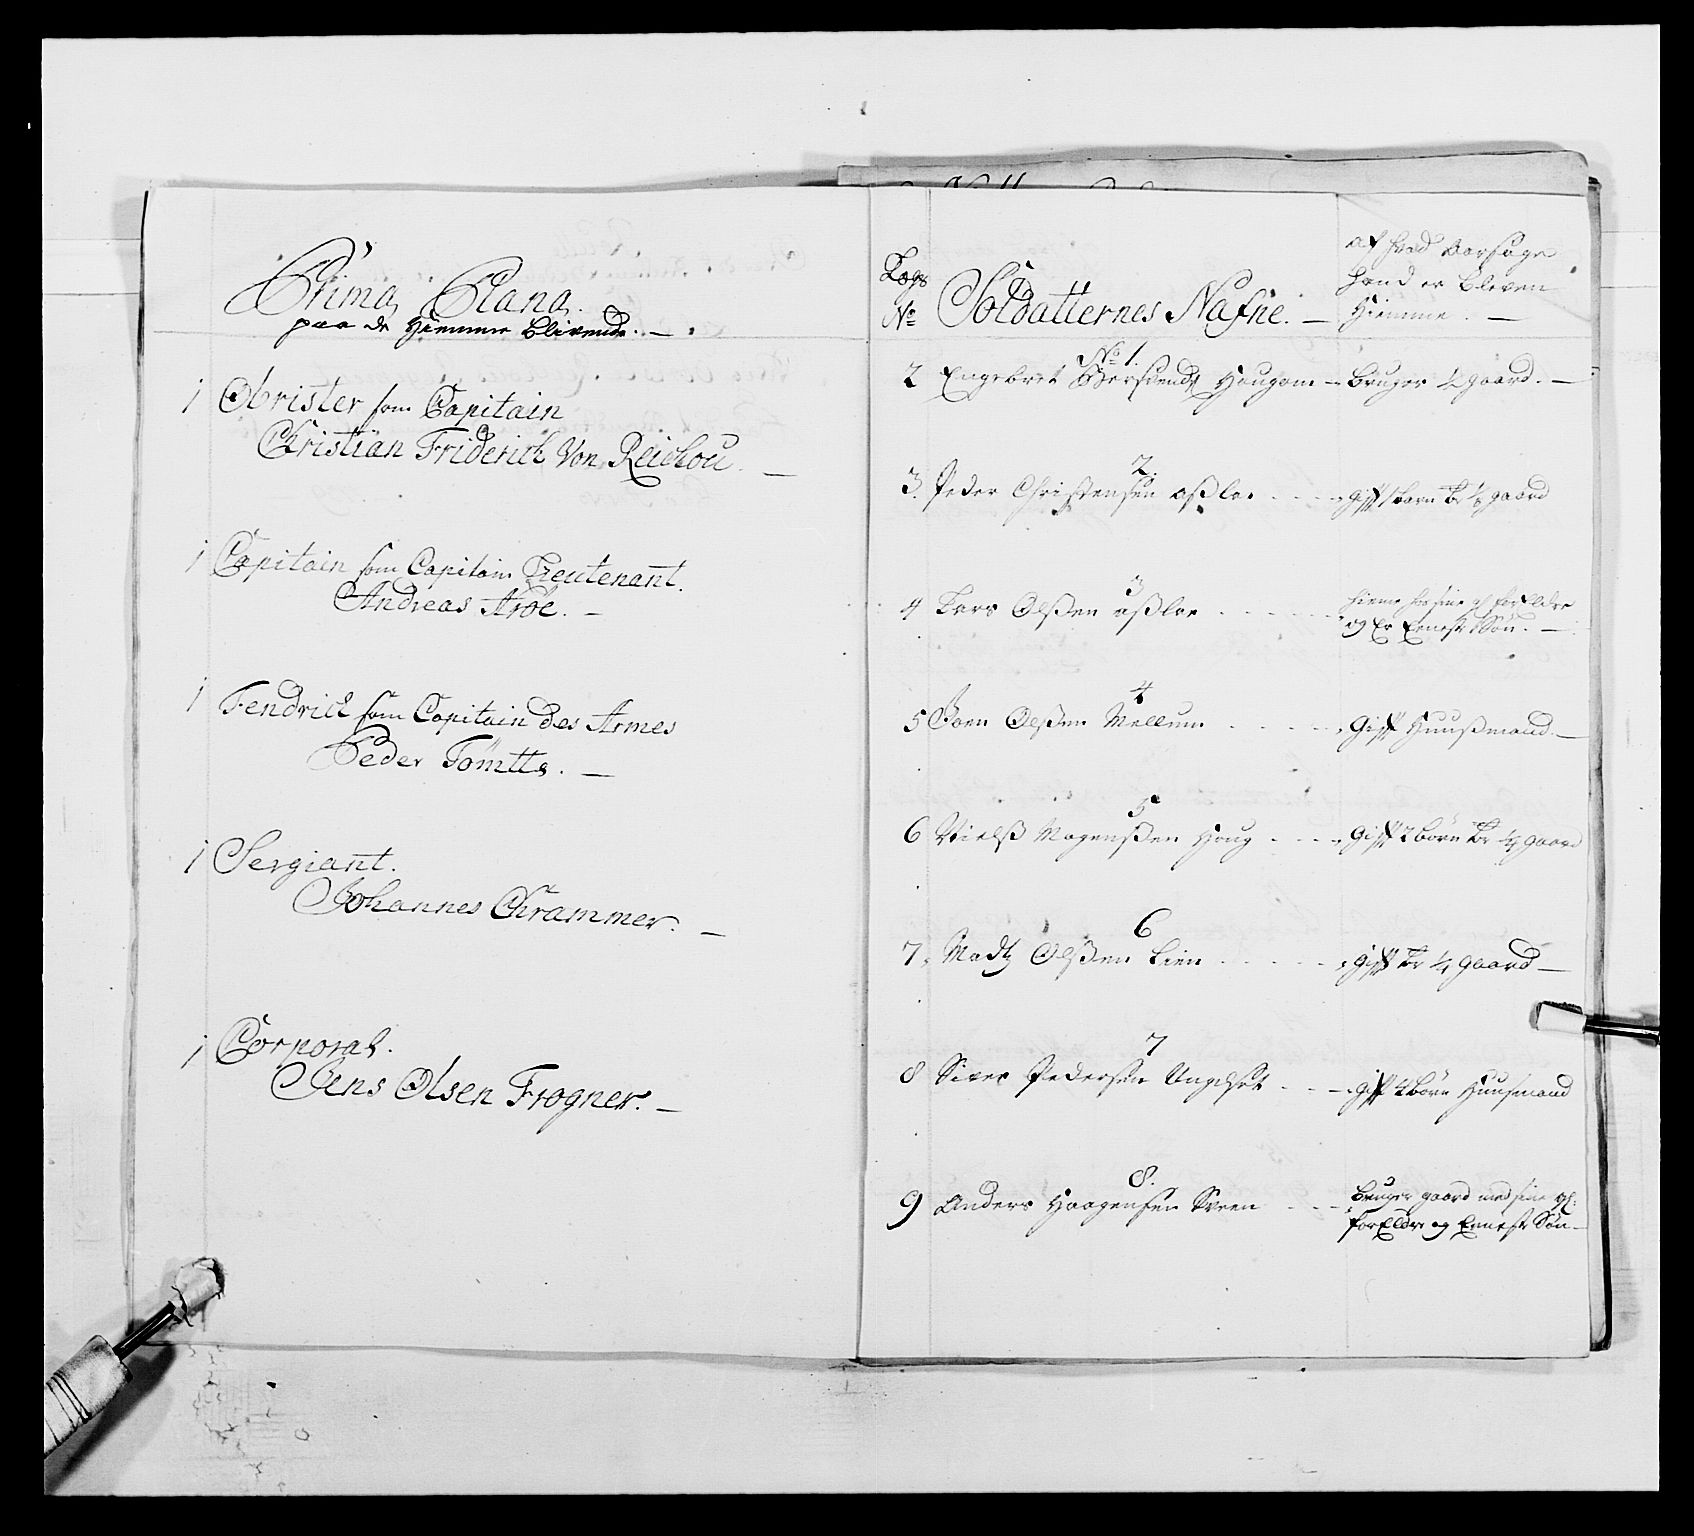 Prima Plana
paa de Hiemme Blivende. —
1 Obrister som Capitain
Christian Friderich Von Reichou. —
1 Capitain som Capitain Lieutenant.
Andreas Aröe. —
1 Fendrich som Capitain des Armes
Peder Tömtte. —
1 Sergiant.
Johannes Chrammer. —
1 Corporal.
Jens Olsen Frogner. —
Lægs
No
Soldatternes Nafne. —
af hvad Aarsage
hand er bleven
Hiemme. —
No 1.
2 Engebret Haugom — bruger ½ gaard. —
2.
3. Peder Christensen aßlee . . . gift 1 barn br ⅛ gaard
3
4 Lars Olßen aßlee . . . hieme hos sine gl forEldre
og Er Eneste Sön. —
4
5 Joen Olßen Mellum . . . gift Huußmand. —
5
6 Nielß Mogenßen Houg . . . gift 2 börn br ¼ gaard
6
7. Madtz Olßen Lien . . . gift br ¼ gaard —
7
8 Siver Pedersen Ungelset . . . gift 4 börn Huusmand
8.
9 Anders Haagensen Sveen . . . bruger gaard med sine gl:
forEldre og Enneste Sön —